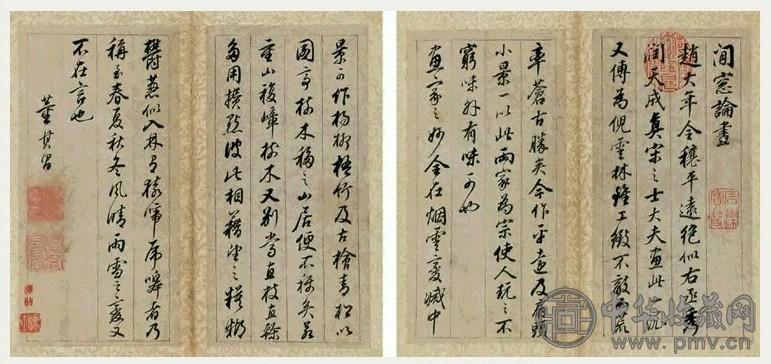 閒窓論畫
趙大年令穰平遠絕似右丞秀
潤天成真宋之士大夫畫此一派
又傳為倪雲林雖工緻不敵而荒
率蒼古勝矣今作平遠及扇頭
小景一以此兩家為宗使人玩之不
窮味外有味可也
畫家之妙全在烟雲變滅中
景可作楊柳梧竹及古檜青松以
園亭樹木移之山居便不稱矣若
重山複嶂樹木又別當直枝直幹
多用攢點彼此相藉望之糢糊
鬱葱似入林有猿啼虎嘷者乃
稱至春夏秋冬風晴雨雪之變又
不在言也
董其昌
中华收藏网
www.pmv.cn